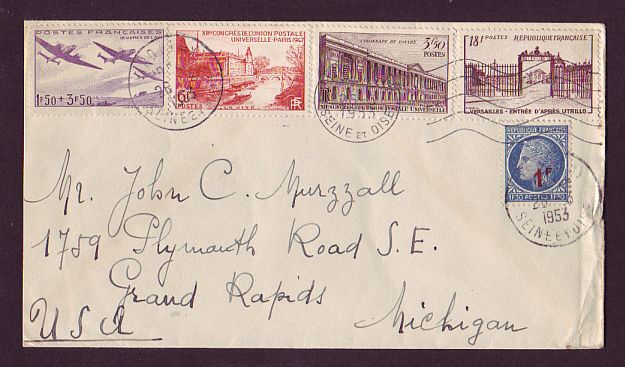 POSTES FRANÇAISES
1F50+3F50
XIIe CONGRÈS DE L'UNION POSTALE
UNIVERSELLE-PARIS 1947
POSTES
RF
COLONNADE DU LOUVRE
3F50
POSTES
18F POSTES RÉPUBLIQUE FRANÇAISE
VERSAILLES - ENTRÉE D'APRÈS UTRILLO
SEINE ET OISE
RÉPUBLIQUE FRANÇAISE
1F
1F30 POSTES 1F30
1953
SEINE ET OISE
Mr. John C. Murzzall
1759 Plymouth Road S.E.
Grand Rapids
Michigan
USA